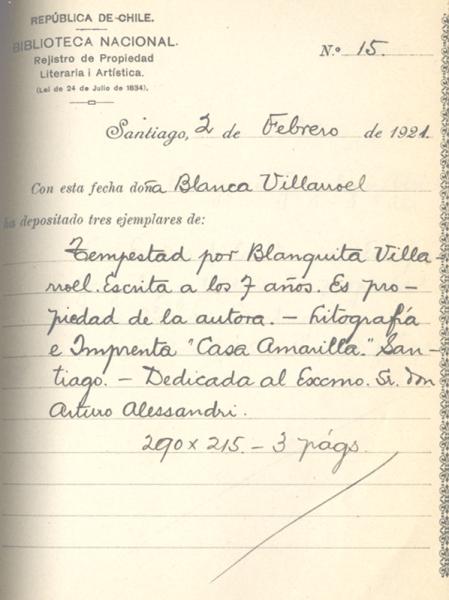 REPÚBLICA DE CHILE.
BIBLIOTECA NACIONAL.
Rejistro de Propiedad
Literaria i Artística.
(Lei de 24 de Julio de 1834).
N.º 15.
Santiago, 2 de Febrero de 1921.
Con esta fecha doña Blanca Villarroel
ha depositado tres ejemplares de:
Tempestad por Blanquita Villa-
rroel. Escrita a los 7 años. Es pro-
piedad de la autora. — Litografía
e Imprenta "Casa Amarilla." San-
tiago. — Dedicada al Excmo. Sr. don
Arturo Alessandri.
290 x 215. — 3 págs.